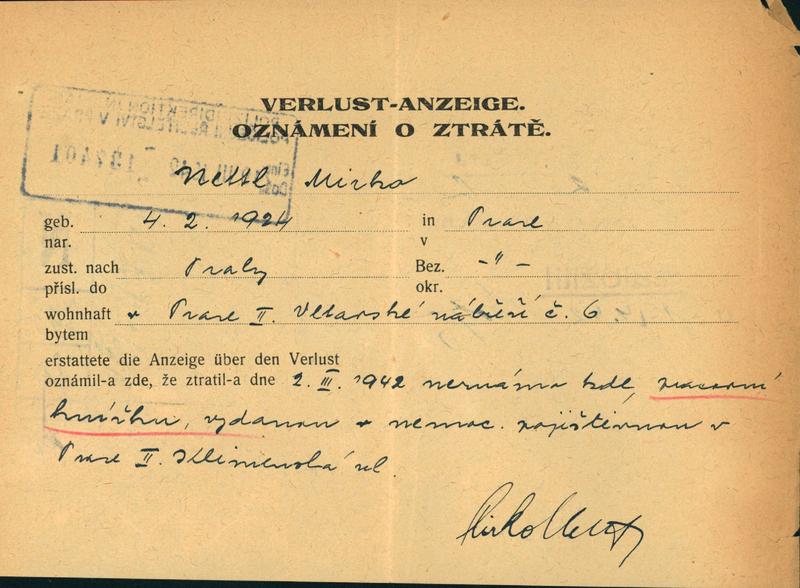 VERLUST-ANZEIGE.
OZNÁMENÍ O ZTRÁTĚ.
POLIZEIDIREKTION IN
POLICEJNÍ ŘEDITELSTVÍ V PRAZE
137401
Nettl Mirko
geb. 4. 2. 1924 in Praze
nar. v
zust. nach Prahy Bez. -"-
přísl. do okr.
wohnhaft v Praze II. Vltavské nábřeží č. 6
bytem
erstattete die Anzeige über den Verlust
oznámil-a zde, že ztratil-a dne 2. III. 1942 neznámo kde, pracovní
knížku, vydanou nemoc. pojišťovnou v
Praze II. Klimenská ul.
Mirko Nettl